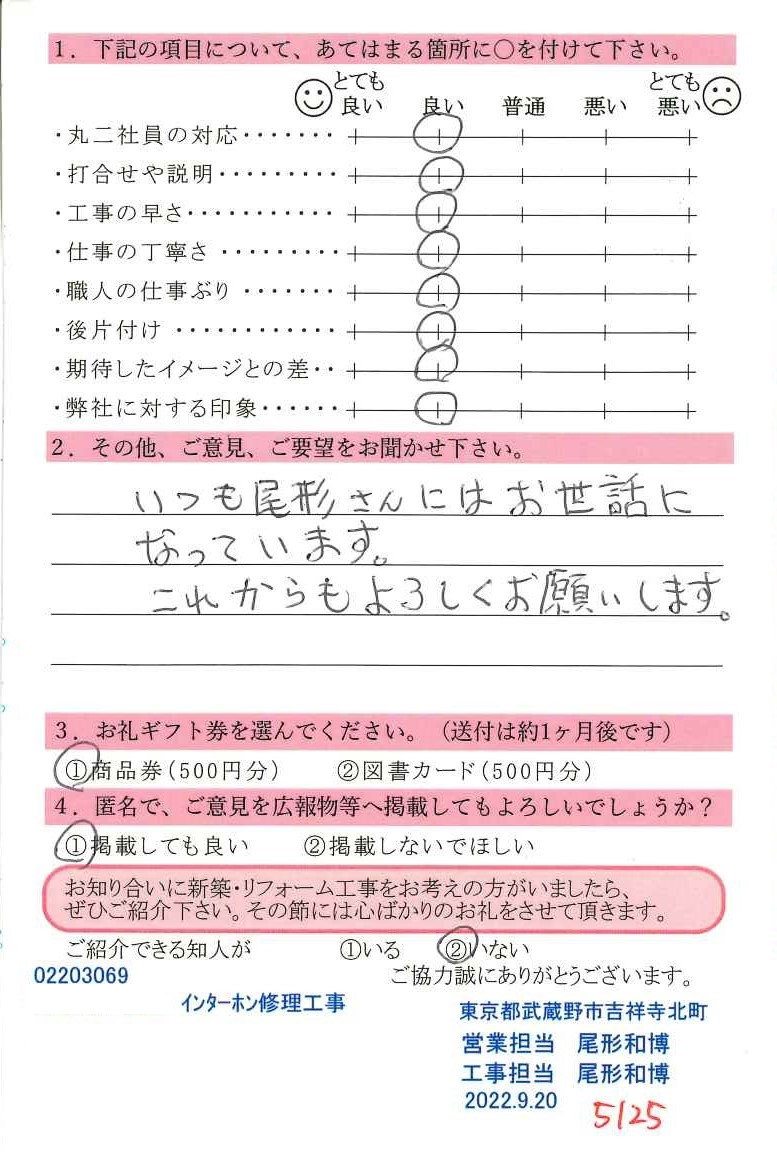 1. 下記の項目について、あてはまる箇所に○を付けて下さい。
とても良い 良い 普通 悪い とても悪い
・丸二社員の対応・・・・・・・
・打合せや説明・・・・・・・・・
・工事の早さ・・・・・・・・・・・
・仕事の丁寧さ ・・・・・・・・・
・職人の仕事ぶり ・・・・・・・
・後片付け ・・・・・・・・・・・・
・期待したイメージとの差・・
・弊社に対する印象・・・・・・
2. その他、ご意見、ご要望をお聞かせ下さい。
いつも尾形さんにはお世話に
なっています。
これからもよろしくお願いします。
3. お礼ギフト券を選んでください。(送付は約1ヶ月後です)
①商品券(500円分) ②図書カード(500円分)
4. 匿名で、ご意見を広報物等へ掲載してもよろしいでしょうか?
①掲載しても良い ②掲載しないでほしい
お知り合いに新築・リフォーム工事をお考えの方がいましたら、
ぜひご紹介下さい。その節には心ばかりのお礼をさせて頂きます。
ご紹介できる知人が ①いる ②いない
02203069 ご協力誠にありがとうございます。
インターホン修理工事 東京都武蔵野市吉祥寺北町
営業担当 尾形和博
工事担当 尾形和博
2022.9.20 5125